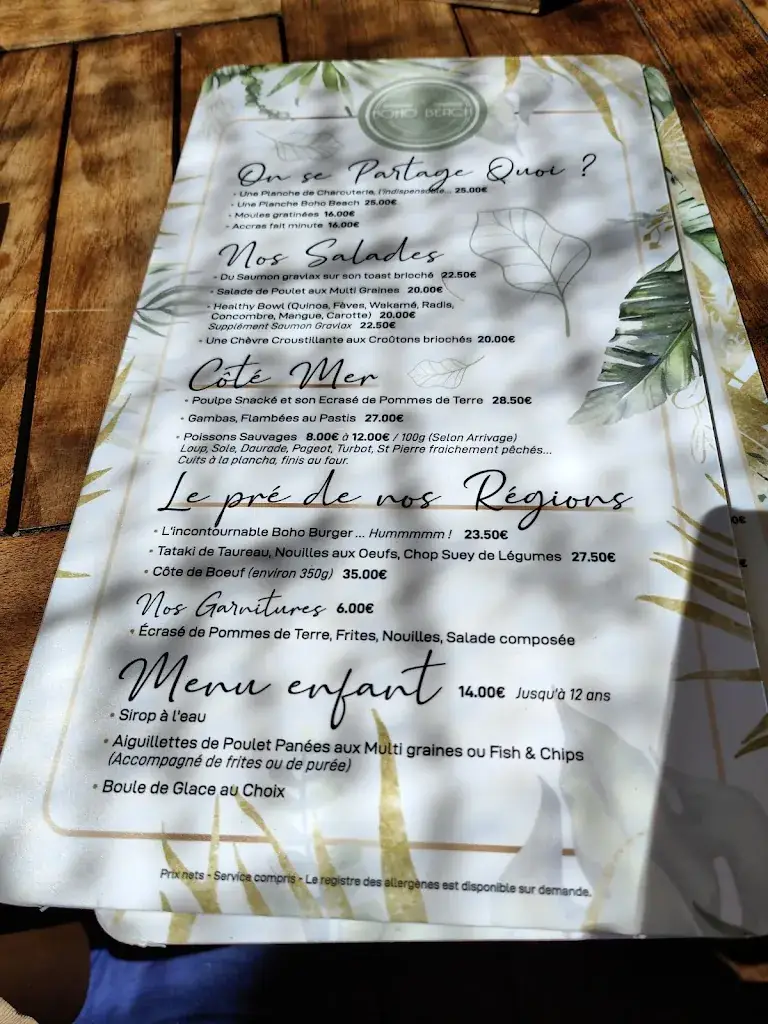 BOHO BEACH
On se Partage Quoi ?
• Une Planche de Charcuterie, l'indispensable... 25.00€
• Une Planche Boho Beach 25.00€
• Moules gratinées 16.00€
• Accras fait minute 16.00€
Nos Salades
• Du Saumon gravlax sur son toast brioché 22.50€
• Salade de Poulet aux Multi Graines 20.00€
• Healthy Bowl (Quinoa, Fèves, Wakamé, Radis,
Concombre, Mangue, Carotte) 20.00€
Supplément Saumon Gravlax 22.50€
• Une Chèvre Croustillante aux Croûtons briochés 20.00€
Côté Mer
• Poulpe Snacké et son Ecrasé de Pommes de Terre 28.50€
• Gambas, Flambées au Pastis 27.00€
• Poissons Sauvages 8.00€ à 12.00€ / 100g (Selon Arrivage)
Loup, Sole, Daurade, Pageot, Turbot, St Pierre fraichement pêchés...
Cuits à la plancha, finis au four.
Le pré de nos Régions
• L'incontournable Boho Burger ... Hummmmm ! 23.50€
• Tataki de Taureau, Nouilles aux Oeufs, Chop Suey de Légumes 27.50€
• Côte de Boeuf (environ 350g) 35.00€
Nos Garnitures 6.00€
• Écrasé de Pommes de Terre, Frites, Nouilles, Salade composée
Menu enfant 14.00€ Jusqu'à 12 ans
• Sirop à l'eau
• Aiguillettes de Poulet Panées aux Multi graines ou Fish & Chips
(Accompagné de frites ou de purée)
• Boule de Glace au Choix
Prix nets - Service compris - Le registre des allergènes est disponible sur demande.